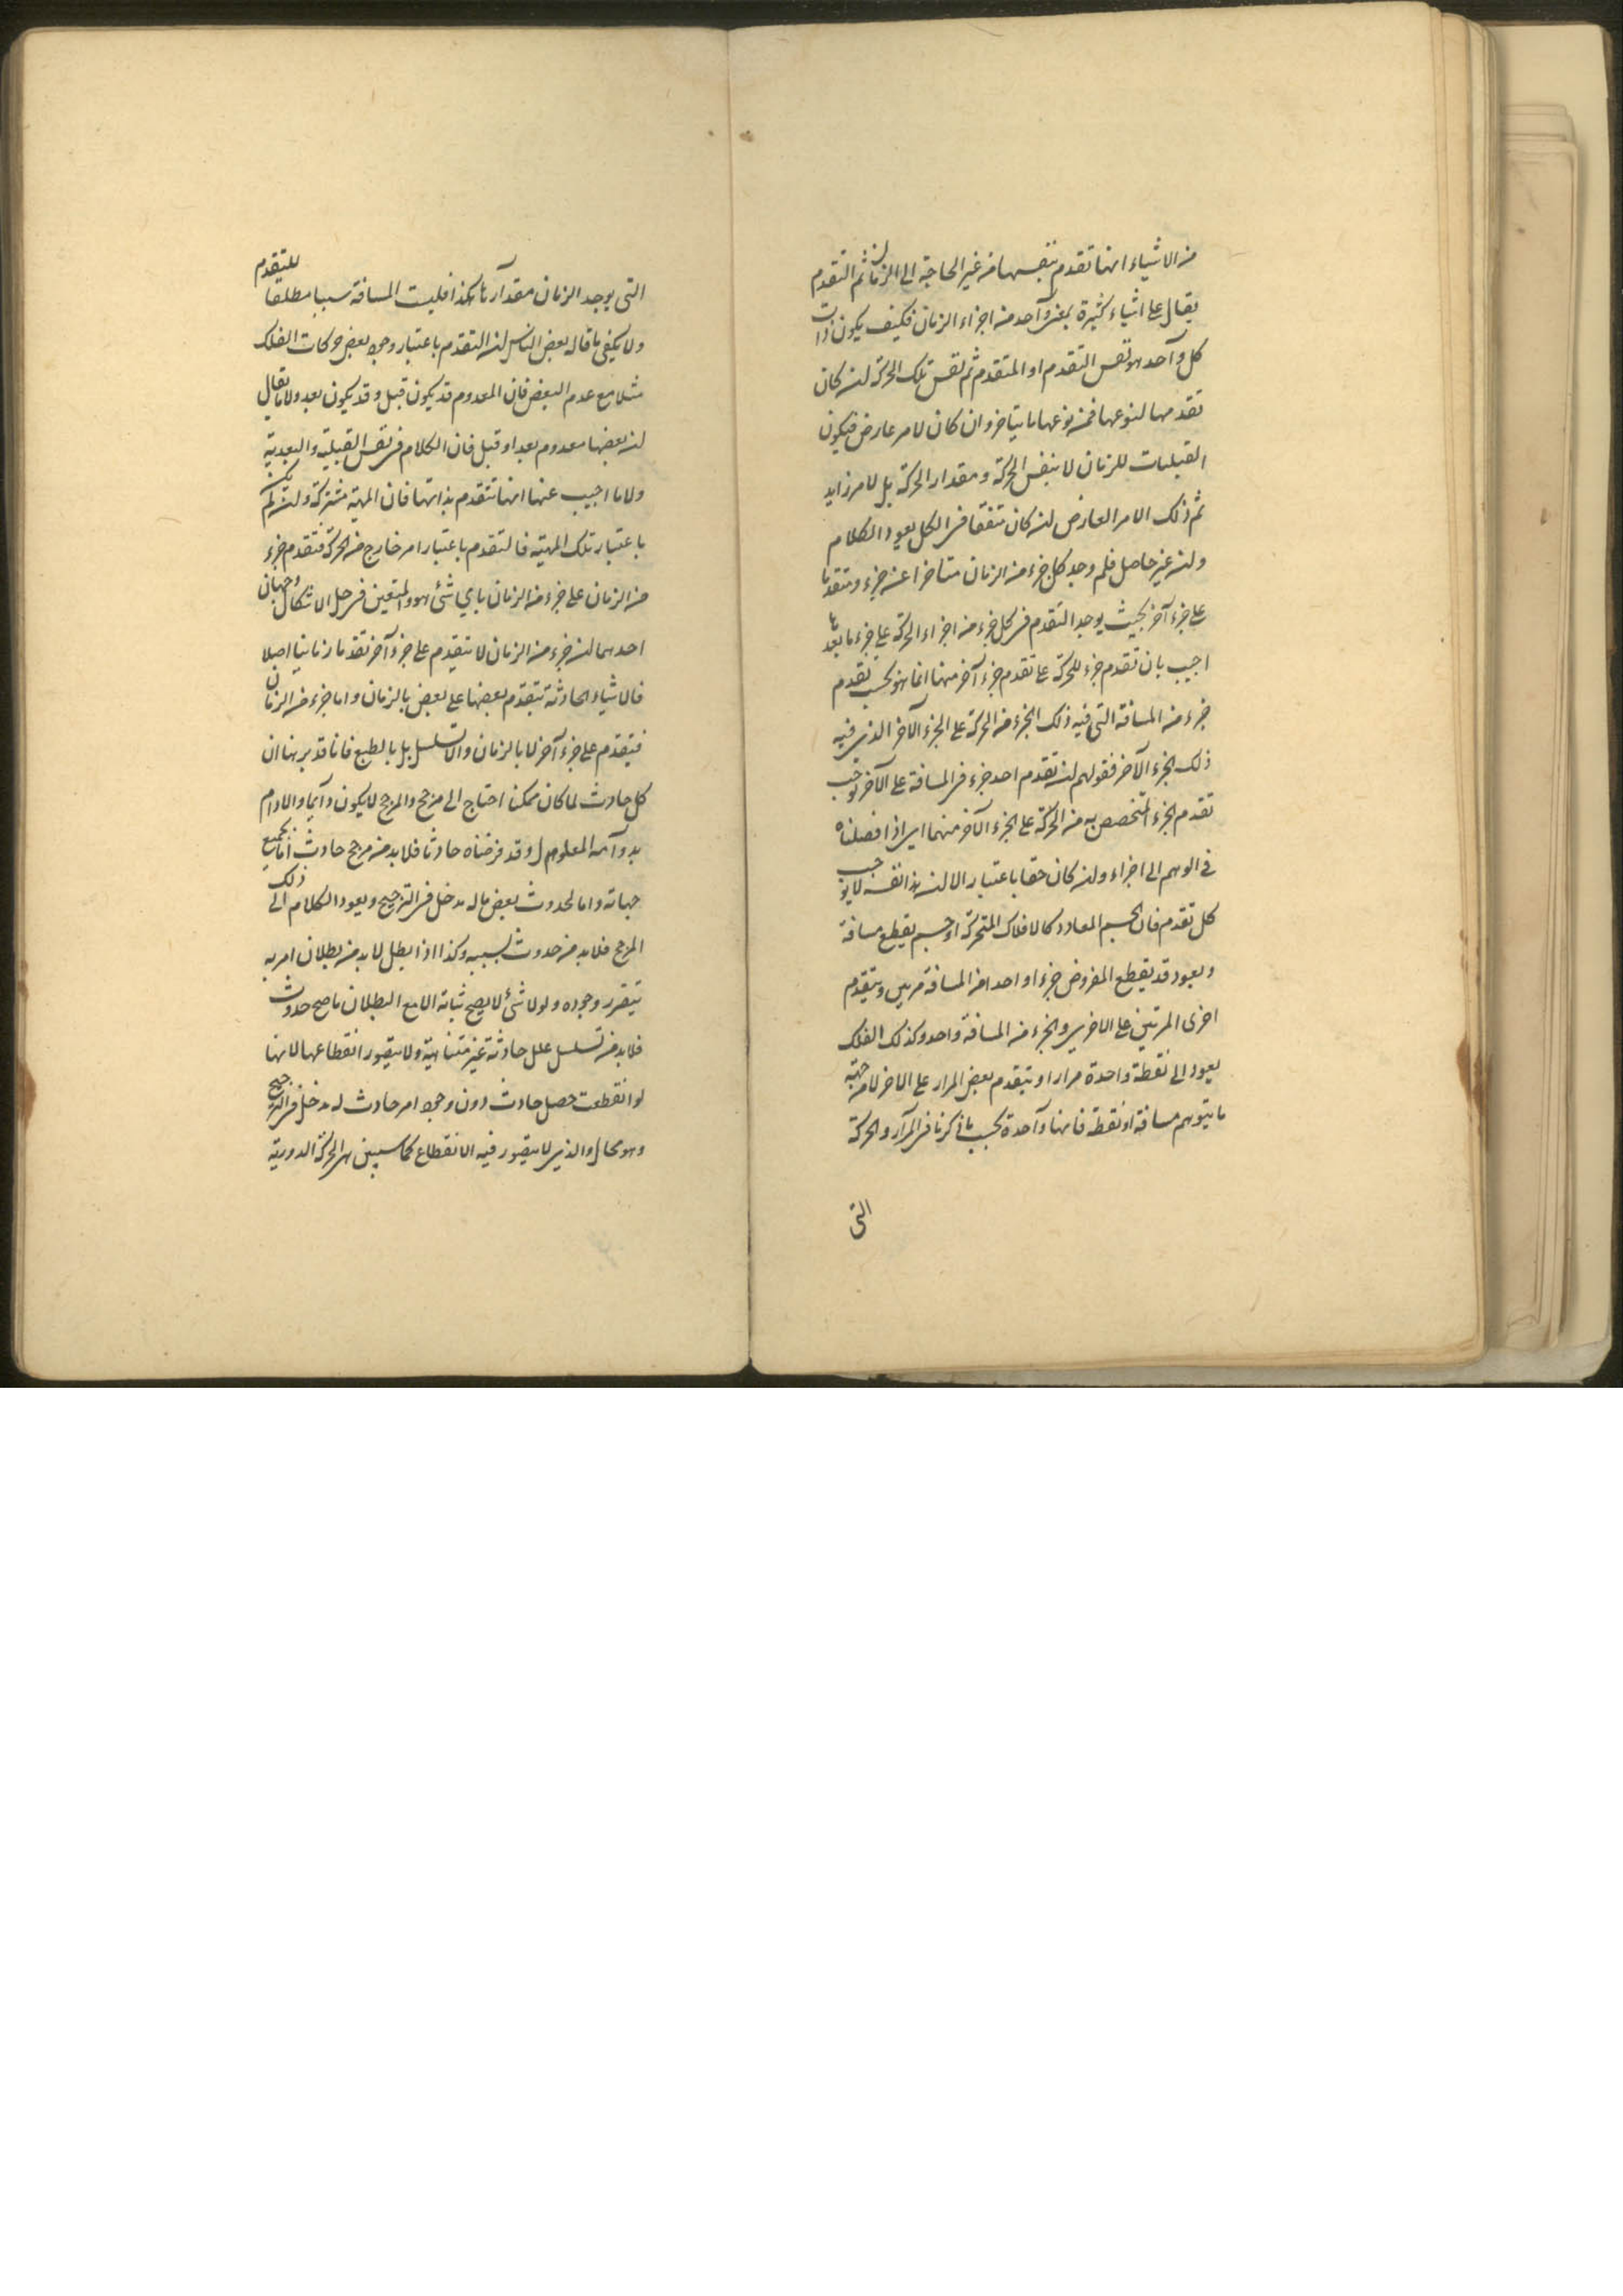 من الاشياء انها تقدم بنفسها من غير الحاجة الى الزمان ثم التقدم
يقال على اشياء كثيرة بمعنى وآحد من اجزاء الزمان فكيف يكون ذات
كل وآحد هو نفس التقدم او المتقدم ثم نفس تلك الحركة ان كان
تقدمها لنوعها فمن نوعها ما يتاخر وان كان لامر عارض فيكون
القبليات للزمان لا بنفس الحركة ومقدار الحركة بل لامر زايد
ثم ذلك الامر العارض ان كان متفقا فى الكل يعود الكلام
وان غير حاصل فلم وجد كل جزء من الزمان متاخرا عن جزء ومتقدما
على جزء آخر بحيث يوجد التقدم فى كل جزء من اجزاء الحركة على جزء ما بعد
اجيب بان تقدم جزء للحركة على تقدم جزء آخر منها انما هو بحسب تقدم
جزء من المسافة التى فيه ذلك الجزء من الحركة على الجزء الآخر الذى فيه
ذلك الجزء الآخر فقولهم ان تقدم احد جزء فى المسافة على الآخر يوجب
تقدم الجزء المتخصص به من الحركة على الجزء الآخر منهما اى اذا فصلناه
فى الوهم الى اجزاء وان كان حقا باعتبار الا ان هذا نفسه لا يوجب
كل تقدم فان الجسم المعادد كالافلاك المتحركة او جسم يقطع مسافة
ويعود قد يقطع المفروض جزءا واحدا من المسافة مرتين ويتقدم
احدى المرتين على الاخرى والجزء من المسافة واحد وكذلك الفلك
يعود الى نقطة واحدة مرارا ويتقدم بعض المرار على الاخر لا من جهة
ما يتوهم مسافة او نقطة فانها وآحدة بحسب ما ذكرنا فى المرآر والحركة
التى
التى يوجد الزمان مقدآرها هكذا فليست المسافة سببا مطلقا للتقدم
ولا يكفى ما قاله بعض الناس ان التقدم باعتبار وجود بعض حركات الفلك
مثلا مع عدم البعض فان المعدوم قد يكون قبل وقد يكون بعد ولا ما يقال
ان بعضها معدوم بعد او قبل فان الكلام فى نفس القبلية والبعدية
ولا ما اجيب عنها انها تتقدم بذاتها فان المهية مشتركة وان لم يكن
باعتبار تلك المهية فالتقدم باعتبار امر خارج من الحركة فتقدم جزء
من الزمان على جزء من الزمان باي شئ هو والمتعين فى حل الاشكال وجهان
احدهما ان جزء من الزمان لا يتقدم على جزء آخر تقدما زمانيا اصلا
فالاشياء الحادثة تتقدم بعضها على بعض بالزمان واما جزء من الزمان
فيتقدم على جزء آخر لا بالزمان والا تسلسل بل بالطبع فانا قد برهنا ان
كل حادث لما كان ممكنا احتاج الى مرجح والمرجح لا يكون دآيما والا دام
بدوآمه المعلول وقد فرضناه حادثا فلا بد من مرجح حادث اما بجميع
جهاته واما لحدوث بعض ما له مدخل فى الترجيح ويعود الكلام الى ذلك
المرجح فلا بد من حدوث لسببه وكذا اذا بطل لا بد من بطلان امر به
يتقرر وجوده ولولا شئ لا يصح ثباته الا مع البطلان ما صح حدوث
فلا بد من تسلسل علل حادثة غير متناهية ولا يتصور انقطاعها لانها
لو انقطعت حصل حادث دون وجود امر حادث له مدخل فى الترجيح
وهو محال والذى لا يتصور فيه الانقطاع كما سيبين هى الحركة الدورية